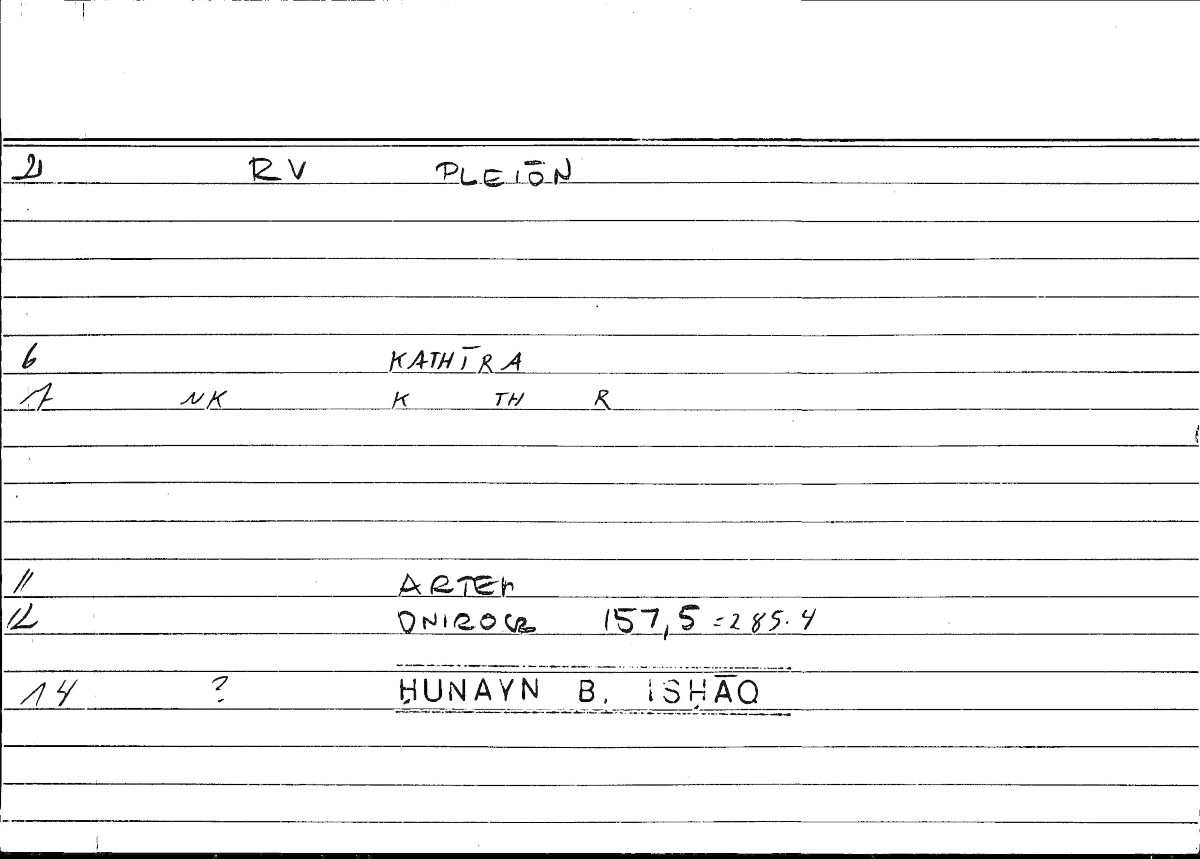 2 RV PLEIŌN
6 KATHĪRA
7 NK K TH R
11 ARTEM
12 ONIROCR 157,5 = 285.4
14 ? ḤUNAYN B. ISḤĀQ